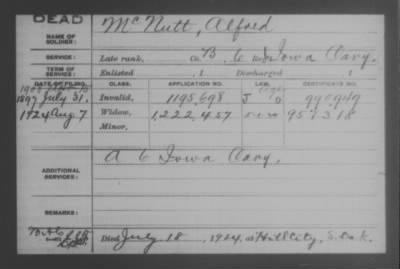 DEAD
NAME OF SOLDIER: McNutt, Alfred
SERVICE: Late rank, Co. B, 6 Iowa Cavy.
TERM OF SERVICE: Enlisted , 1 Discharged , 1
DATE OF FILING. CLASS. APPLICATION NO. LAW. CERTIFICATE NO.
1897 July 31. Invalid, 1195,698
1924 Aug 7 Widow, 1,222,457 957318
Minor,
ADDITIONAL SERVICES: A 6 Iowa Cavy.
REMARKS:
Died July 18, 1924, at Hill City, S. Dak.